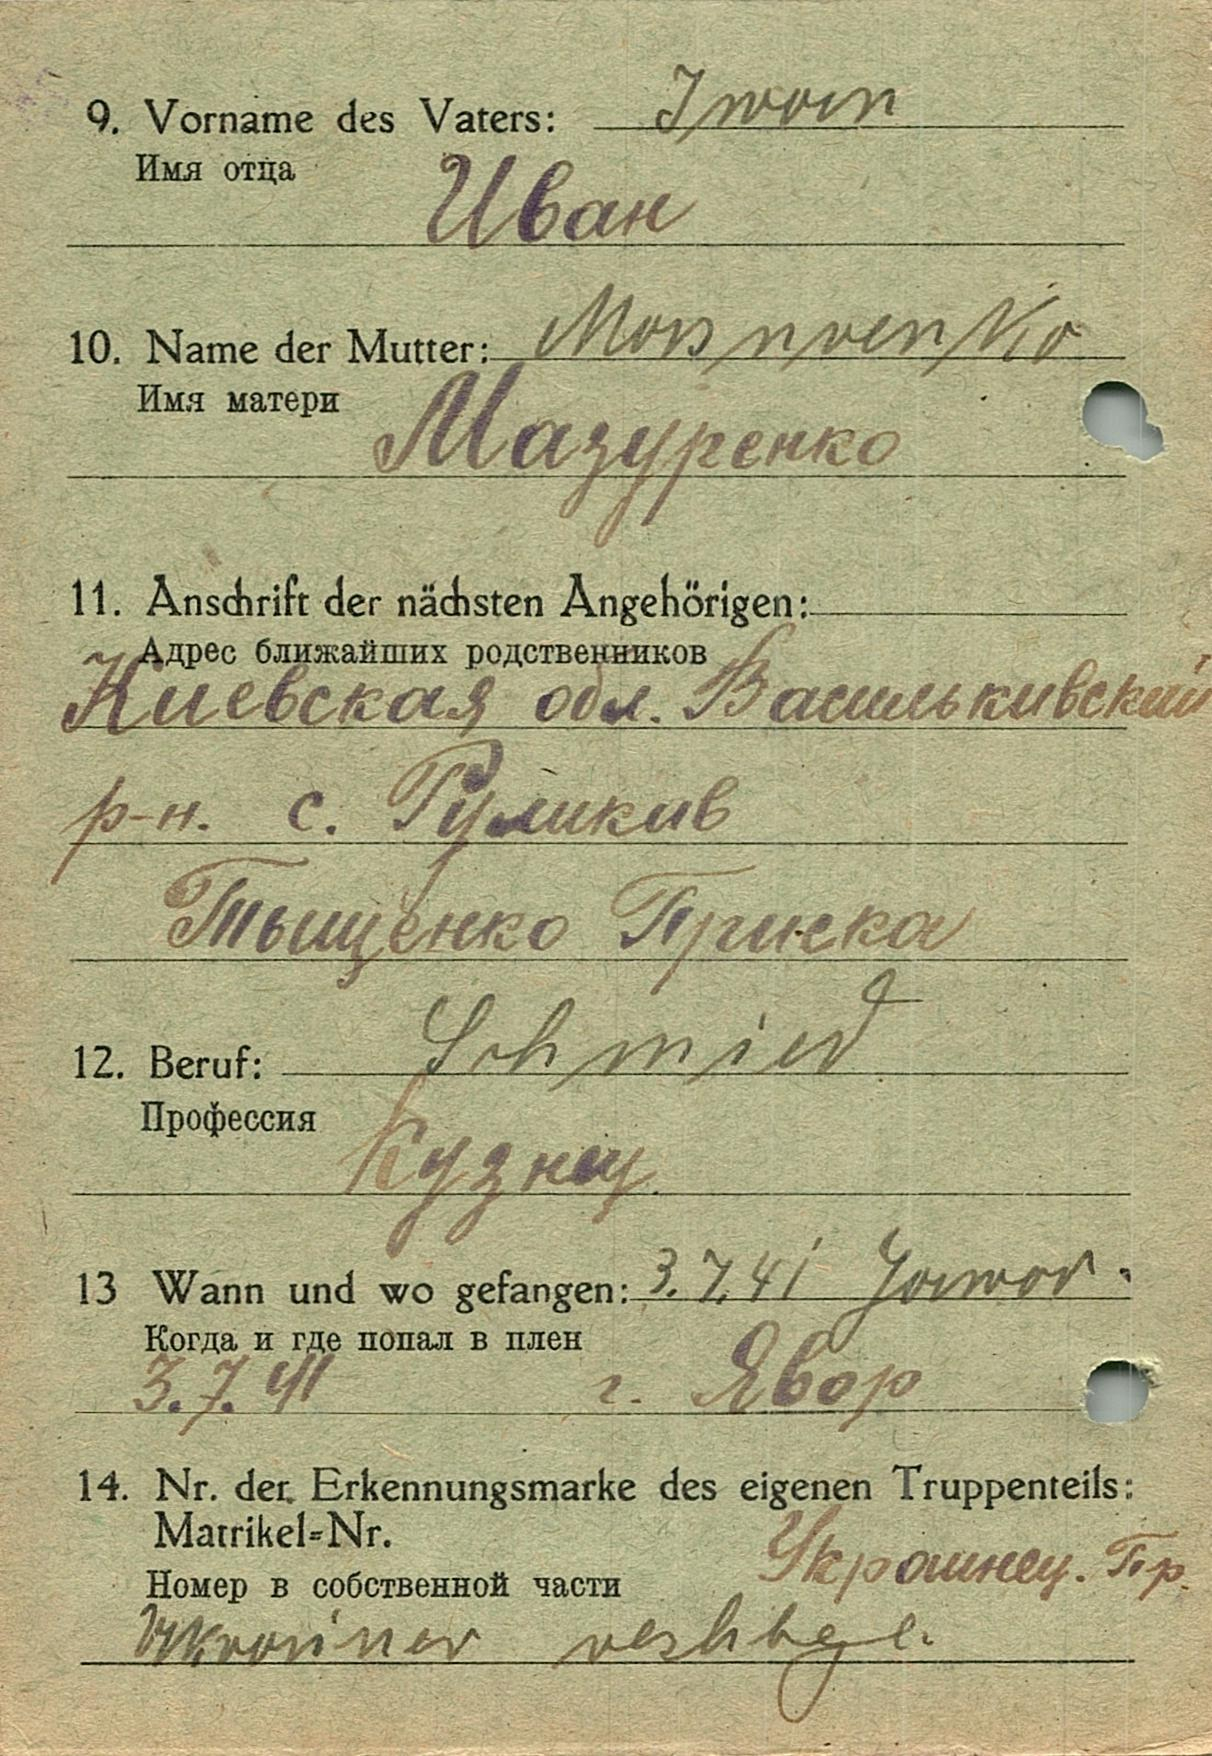 9. Vorname des Vaters: Iwan
Имя отца
Иван
10. Name der Mutter: Masurenko
Имя матери
Мазуренко
11. Anschrift der nächsten Angehörigen:
Адрес ближайших родственников
Киевская обл. Василькивский
р-н. с. Руликив
Тыщенко Приска
12. Beruf: Schmied
Профессия
Кузнец
13 Wann und wo gefangen: 3.7.41 Jawor.
Когда и где попал в плен
3.7.41 г. Явор
14. Nr. der Erkennungsmarke des eigenen Truppenteils:
Matrikel=Nr.
Украинец. Пр.
Номер в собственной части
Ukrainer